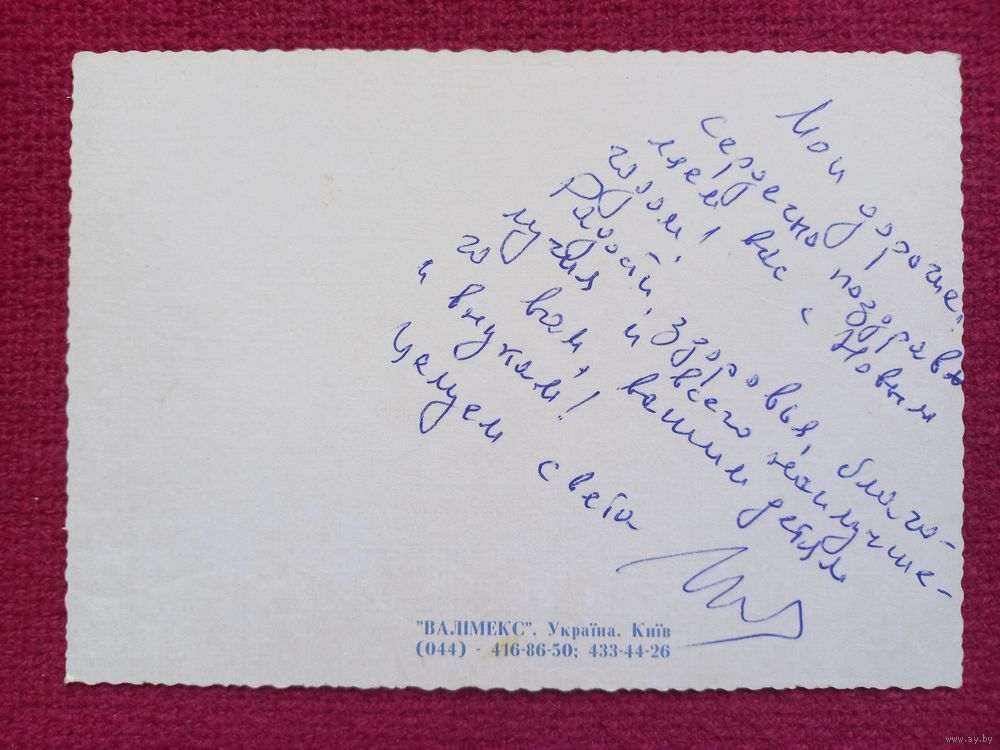 Мои дорогие!
сердечно поздравля
ляем вас с Новым
годом!
Радости, здоровья, благо-
лучия и всего наилучше-
го вам, вашим детям
и внукам!
Целуем Света
"ВАЛІМЕКС". Україна. Київ
(044) - 416-86-50; 433-44-26
www.ay.by